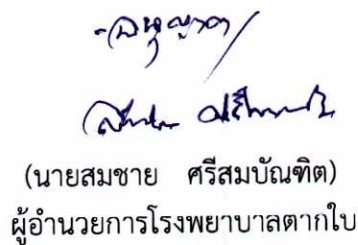 -อนุญาต
(นายสมชาย ศรีสมบัณฑิต)
ผู้อำนวยการโรงพยาบาลตากใบ